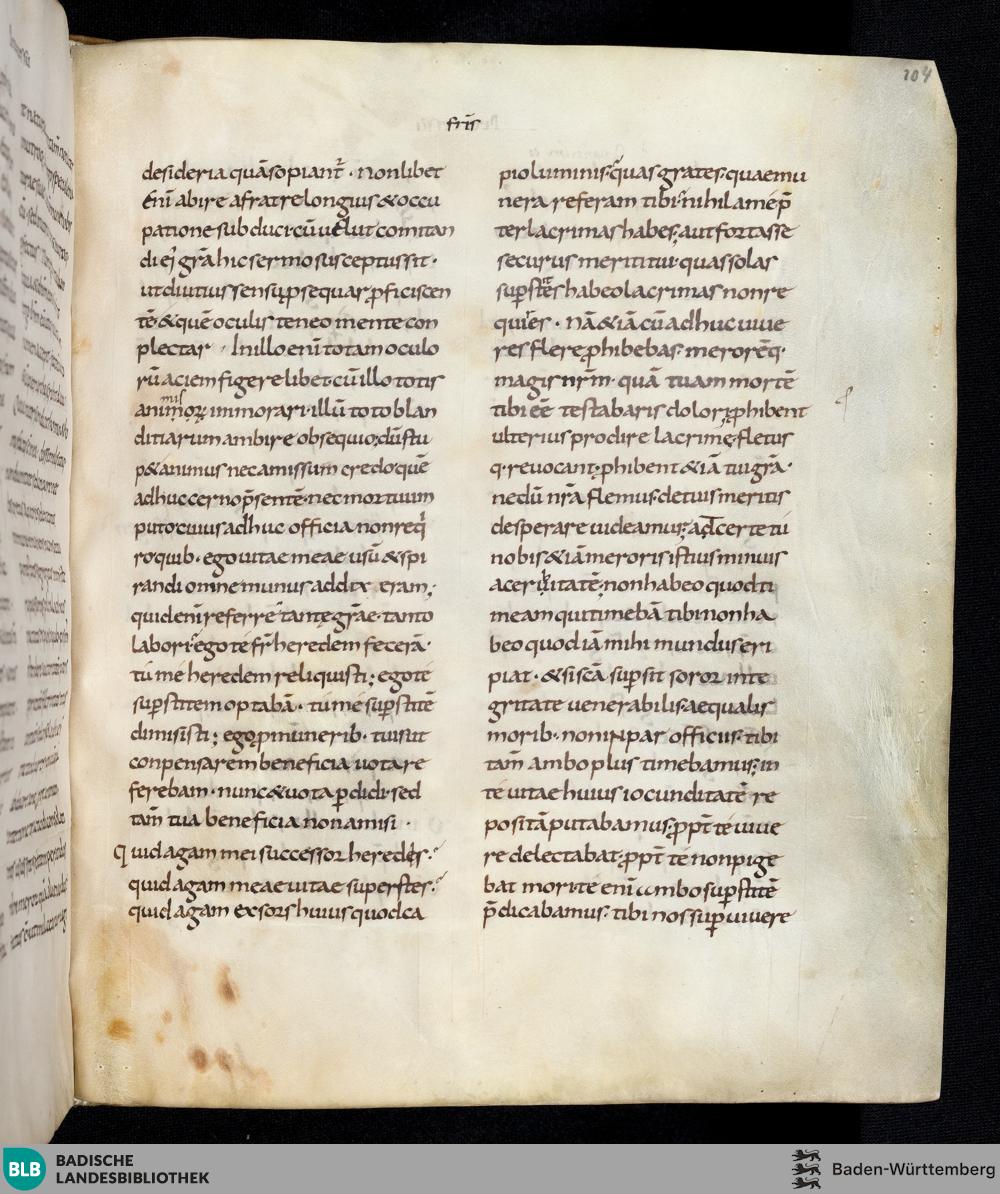 104
fr̄is
desideria quā sopiant̄ · non libet
Enī abire afratre longius & occu
patione subduci · cū uelut comitan
di eī grā hic sermo susceptus sit ·
ut diutius sensu psequar pficiscen
tē · & quē oculis teneo mente con
plectar · In illo enī totam oculo
rū aciem figere libet · cū illo totis
animoꝝ immorari · illū toto blan
ditiarum ambire obsequio; dū stu
p& animus nec amissum credo quē
adhuc cerno p̄sentē · nec mortuum
puto cuius adhuc officia non req̄
ro quib · ego uitae meae usū & spi
randi omne munus addix eram ;
quid enī referrē tantę grāe · tanto
labori · ego te fr̄ heredem fecerā ·
tu me heredem reliquisti ; ego te
supstitem optabā · tu me supstitē
dimisisti ; ego p munerib · tuis ut
conpensarem beneficia uotare
ferebam · nunc & uota pdidi · sed
tam̄ tua beneficia non amisi ·
Quid agam mei successor heredis ·
quid agam meae uitae superstes ·
quid agam exsors huius quod ca
pio luminis · quas grates · quae mu
nera referam tibi · nihil a me p̄
ter lacrimas habes; aut fortasse
securus meriti tui · quas solas
supstes habeo lacrimas non re
quires · nā & iā cū adhuc uiue
res flere phibebas · merorēq ·
magis nr̄m · quā tuam mortē
tibi eē testabaris dolorī phibent
ulterius prodire lacrimę · fletus
q · reuocant · phibent & iā tui grā ·
ne dū nr̄a flemus · de tuis meritis
desperare uideamur; at certe tu
nobis & iā meroris istius minuis
aceruitatē; non habeo quod ti
meam qui timebā tibi non ha
beo quod iā mihi mundus eri
piat · & si scā supsit soror inte
gritate uenerabilis · aequalis
morib · non inpar officiis · tibi
tam̄ ambo plus timebamus; in
te uitae huius iocunditatē re
positā putabamus · ppt̄ te uiue
re delectabat · ppt̄ te non pige
bat mori · te enī ambo supstitē
p̄dicabamur · tibi nos supuiuere
BLB
BADISCHE
LANDESBIBLIOTHEK
Baden-Württemberg